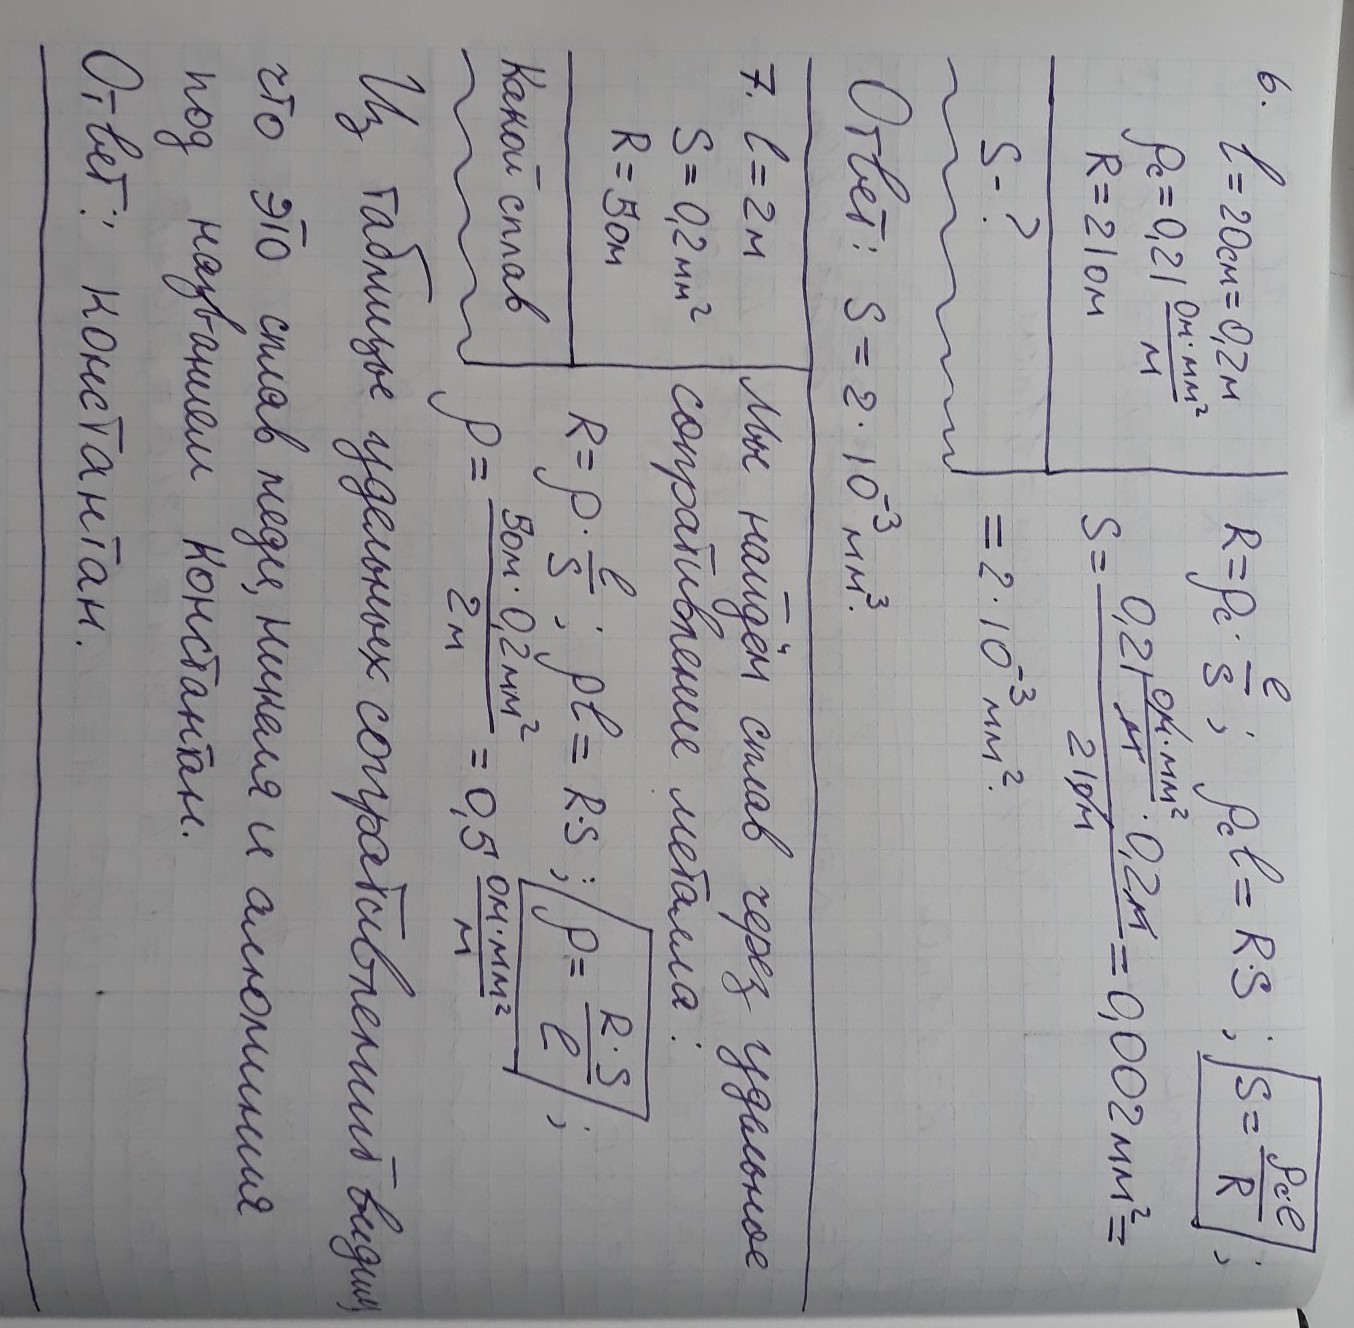 6. l = 20см = 0,2м
ρс = 0,21 Ом·мм²/м
R = 21Ом
S - ?
R = ρс · l/S ; ρс l = R·S ; S = ρс·l/R ;
S = 0,21 Ом·мм²/м · 0,2м / 21Ом = 0,002мм² =
= 2 · 10⁻³ мм².
Ответ: S = 2 · 10⁻³ мм³.
7. l = 2м
S = 0,2мм²
R = 5Ом
Какой сплав
Мы найдём сплав через удельное
сопративление металла:
R = ρ · l/S ; ρl = R·S ; ρ = R·S/l ;
ρ = 5Ом · 0,2мм² / 2м = 0,5 Ом·мм²/м
Из таблицы удельных сопративлений видим,
что это сплав меди, никеля и алюминия
под названием Константан.
Ответ: Константан.